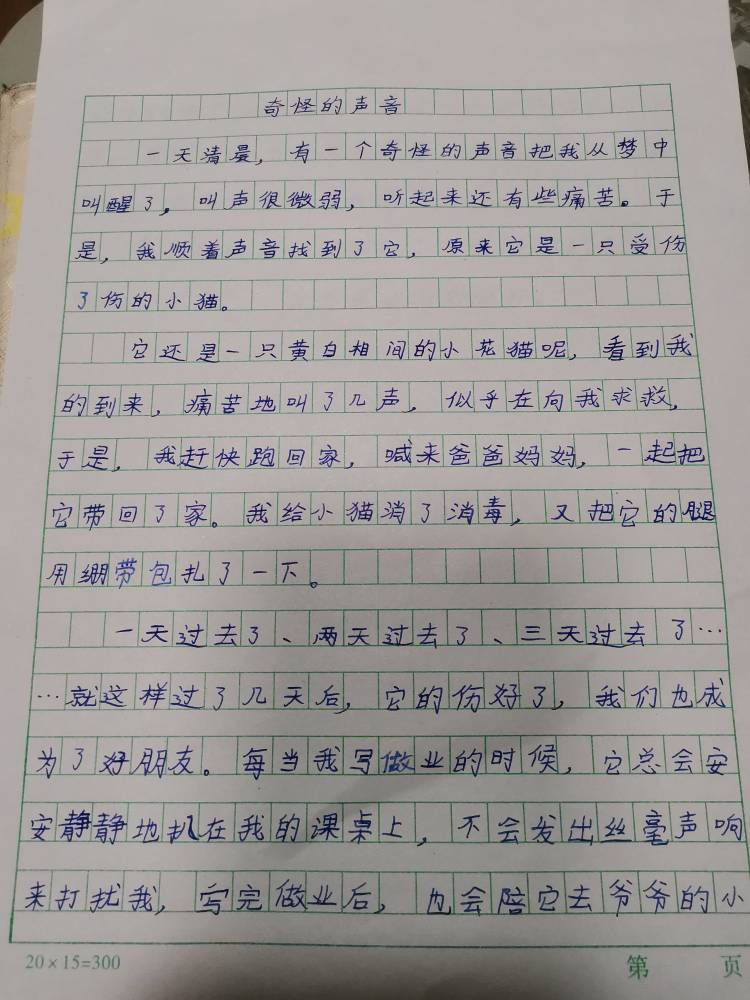 奇怪的声音
一天清晨，有一个奇怪的声音把我从梦中
叫醒了，叫声很微弱，听起来还有些痛苦。于
是，我顺着声音找到了它，原来它是一只受伤
了伤的小猫。
它还是一只黄白相间的小花猫呢，看到我
的到来，痛苦地叫了几声，似乎在向我求救，
于是，我赶快跑回家，喊来爸爸妈妈，一起把
它带回了家。我给小猫消了消毒，又把它的腿
用绷带包扎了一下。
一天过去了、两天过去了、三天过去了…
…就这样过了几天后，它的伤好了，我们也成
为了好朋友。每当我写做业的时候，它总会安
安静静地扒在我的课桌上，不会发出丝毫声响
来打扰我，写完做业后，也会陪它去爷爷的小
20×15=300
第 页